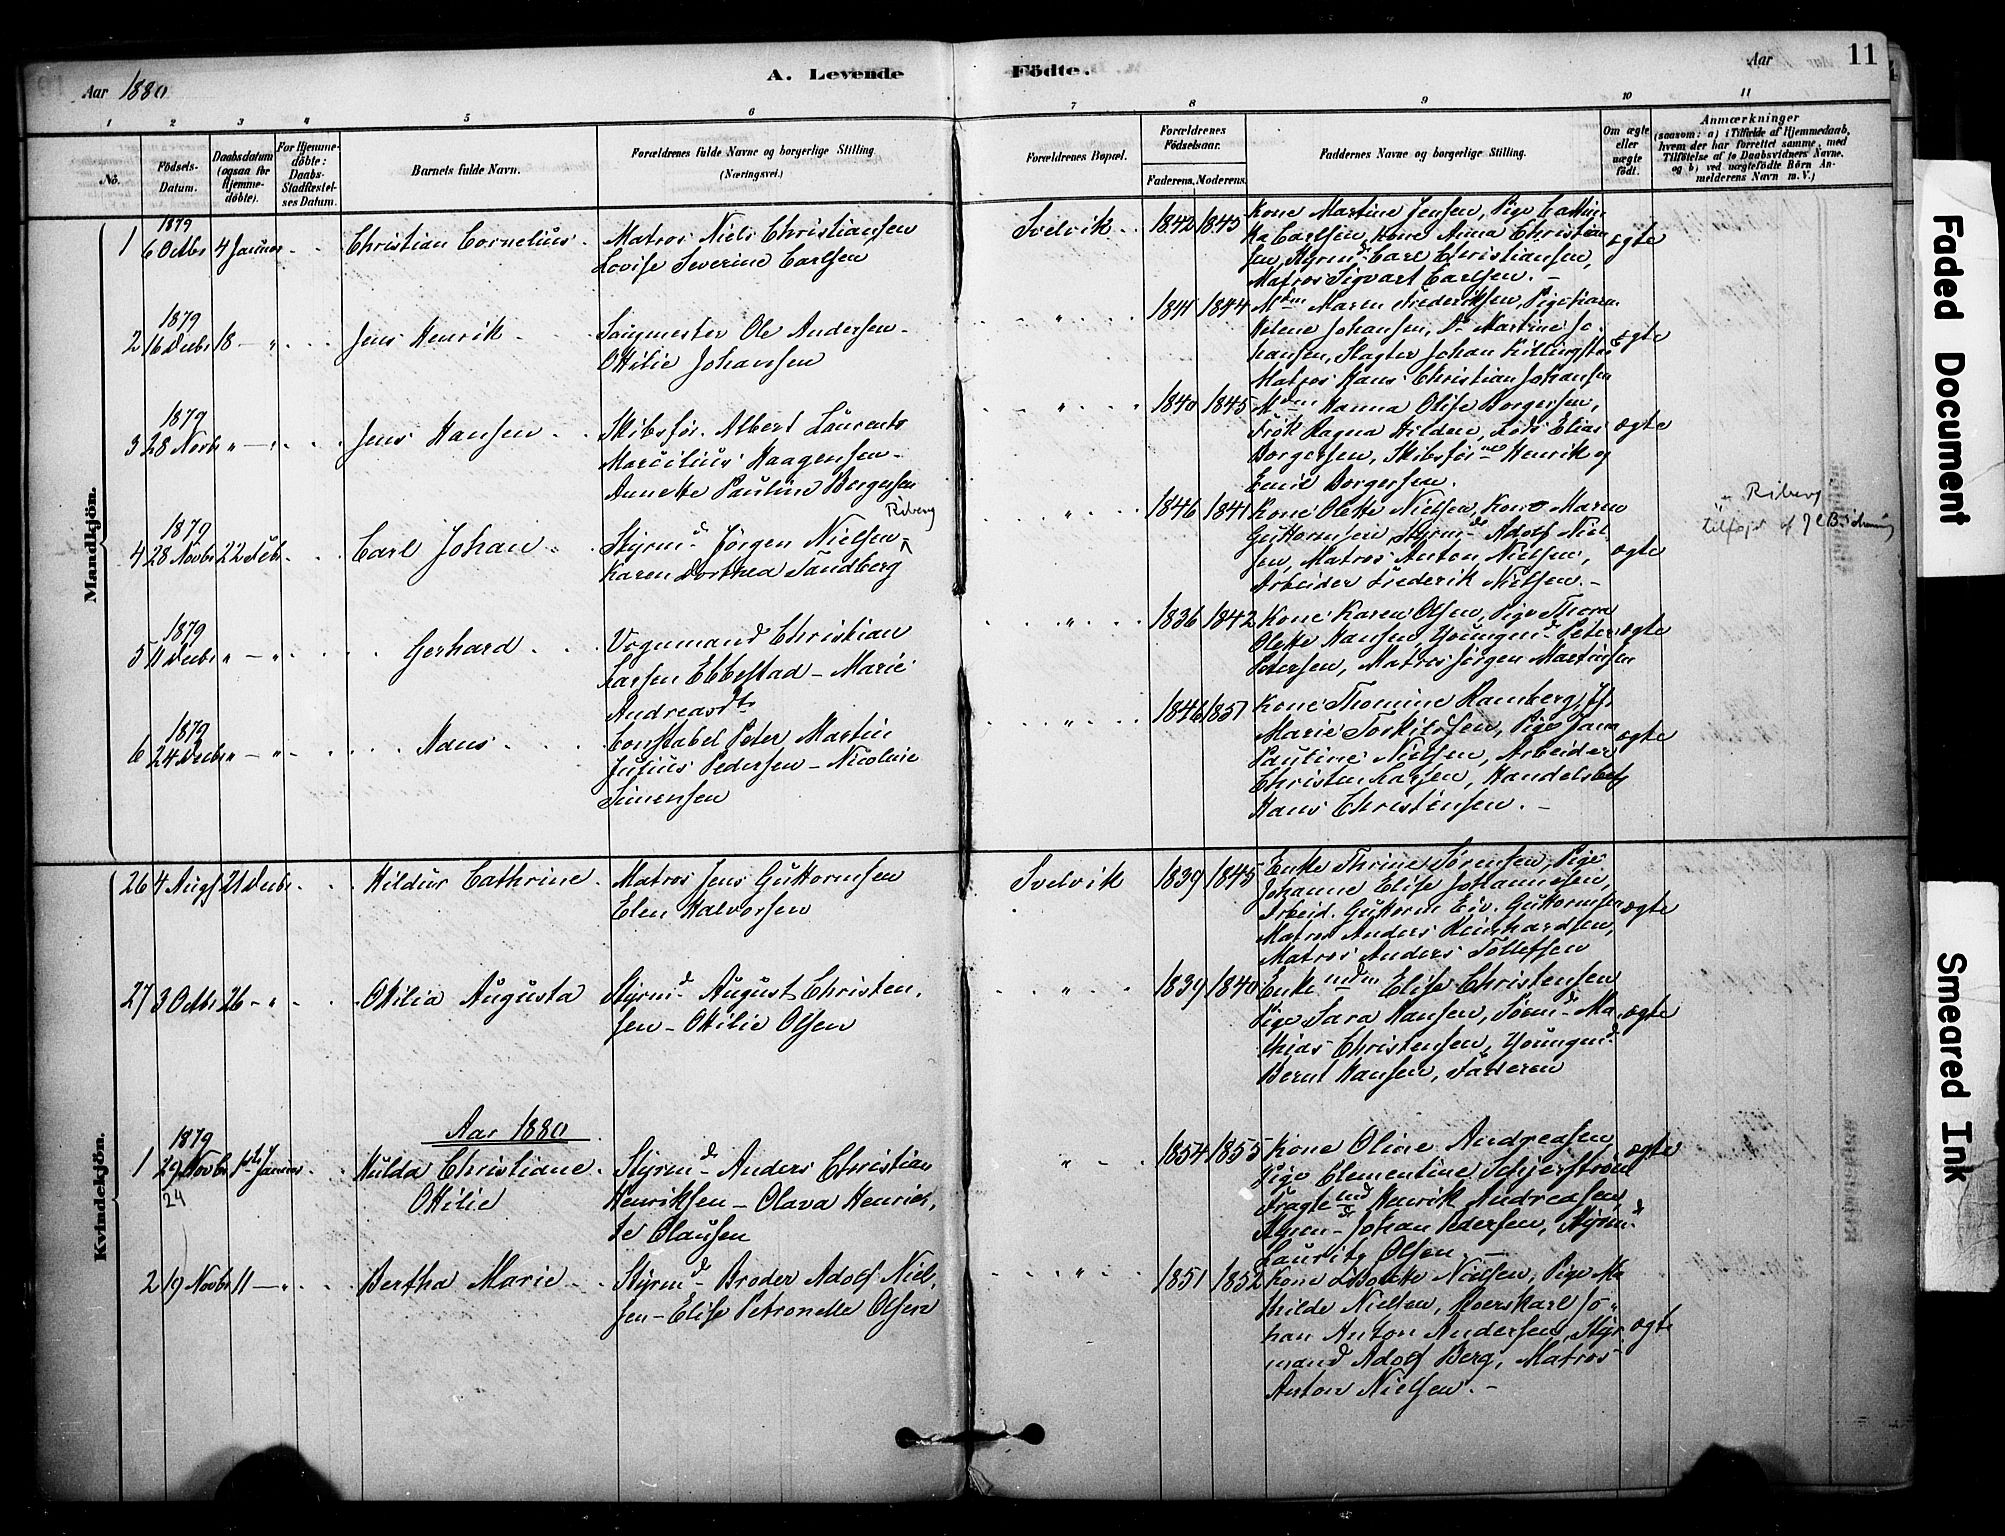 Aar 1880
A. Levende
Födte.
Aar
11
1
2
3
4
5
6
7
8
9
10
11
No.
Födsels-
Datum.
Daabsdatum
(ogsaa for
Hjemme-
döbte).
For Hjemme-
döbte:
Daabs-
Stadfæstel-
ses Datum.
Barnets fulde Navn.
Forældrenes fulde Navne og borgerlige Stilling.
(Næringsvei.)
Forældrenes Bopæl.
Forældrenes
Födselsaar.
Faderens.
Moderens.
Faddernes Navne og borgerlige Stilling.
Om ægte
eller
uægte
födt.
Anmærkninger
(saasom: a) i Tilfælde af Hjemmedaab,
hvem der har forrettet samme, med
Tilföielse af to Daabsvidners Navne.
og b) ved uægtefödte Börn An-
melderens Navn m. V.)
Mandkjön.
1
1879
6 Octbr
4 Januar
Christian Cornelius
Matros Niels Christiansen
Lovise Severine Carlsen
Svelvik
1842
1845
Kone Martine Jensen, Pige
Carlsen, Kone Anna Christian
sen, Styrmd Carl Christiansen,
Matros Sigvart Carlsen.
ægte
2
1879
16 Decbr
18 - "
Jens Henrik
Saugmester Ole Andersen -
Ottilie Johansen
"
1841
1844
Mdm Maren Frederiksen, Pige
Helene Johansen, Do Martine Jo-
hansen, Slagter Johan
Matros Hans Christian Johansen
ægte
3
1879
28 Novbr
" - "
Jens Hansen
Skibsför. Albert Laurents
Marcilius Haagensen -
Annette Pauline Borgersen
"
1840
1845
Mdm Hanna Olise Borgersen,
Frök Ragna Hilden, Lods Elias
Borgersen, Skibsför Henrik og
Emil Borgersen.
ægte
4
1879
28 Novbr
22 Febr
Carl Johan
Styrmd Jörgen Nielsen - Riberg
Karen Dorthea Sandberg
"
1846
1841
Kone Olette Nielsen, Kone Maren
Guttormsen, Styrmd Adolf Niel-
sen, Matros Anton Nielsen,
Arbeider Frederik Nielsen. -
ægte
" Riberg
tilföjet af
5
1879
11 Decbr
" - "
Gerhard
Vognmand Christian
Larsen Ebbestad - Marie
Andreasdtr
"
1836
1842
Kone Karen Olsen, Pige Thora
Olette Hansen, Youngmd Peter
Petersen, Matros Jörgen Martinsen
ægte
6
1879
24 Decbr
" - "
Hans
Constabel Peter Martin
Julius Pedersen - Nicoline
Simensen
"
1846
1851
Kone Thomine Ramberg,
Marie Torkildsen, Pige Jana
Pauline Nielsen, Arbeider
Christen Larsen, Handelsbetj
Hans Christensen. -
ægte
Kvindekjön.
26
4 Augs
21 Decbr
Hildur Cathrine
Matros Jens Guttormsen
Elen Halvorsen
Svelvik
1839
1845
Enke Thrine Sörensen, Pige
Johanne Elise Johannesen,
Arbeid. Guttorm Eiv. Guttormsen
Matros Anders Reinhardsen,
Matros Anders Tollefsen
ægte
27
3 Octbr
26 - "
Ottilia Augusta
Styrmd August Christen-
sen - Ottilie Olsen
"
1839
1840
Enke mdm Elise Christensen
Pige Sara Hansen, Ma-
thias Christensen, Youngmd
Bernt Hansen, Faderen
ægte
Aar 1880
1
1879
29 Novbr
24
1ste Januar
Hulda Christiane
Ottilie
Styrmd Anders Christian
Henriksen - Olava Henriet-
te Olausen
"
1854
1855
Kone Oline Andreasen
Pige Clementine Schjerström
Fragtemd Henrik Andreasen,
Styrmd Johan Pedersen, Styrmd
Lauritz Olsen. -
ægte
2
19 Novbr
11 - "
Bertha Marie
Styrmd Broder Adolf Niel-
sen - Elise Petronelle Olsen
"
1851
1852
Kone Nielsen, Pige Ma-
thilde Nielsen, Roerskarl Jo-
han Anton Andersen, Styr-
mand Adolf Berg, Matros
Anton Nielsen. -
ægte
Faded Document
Smeared Ink